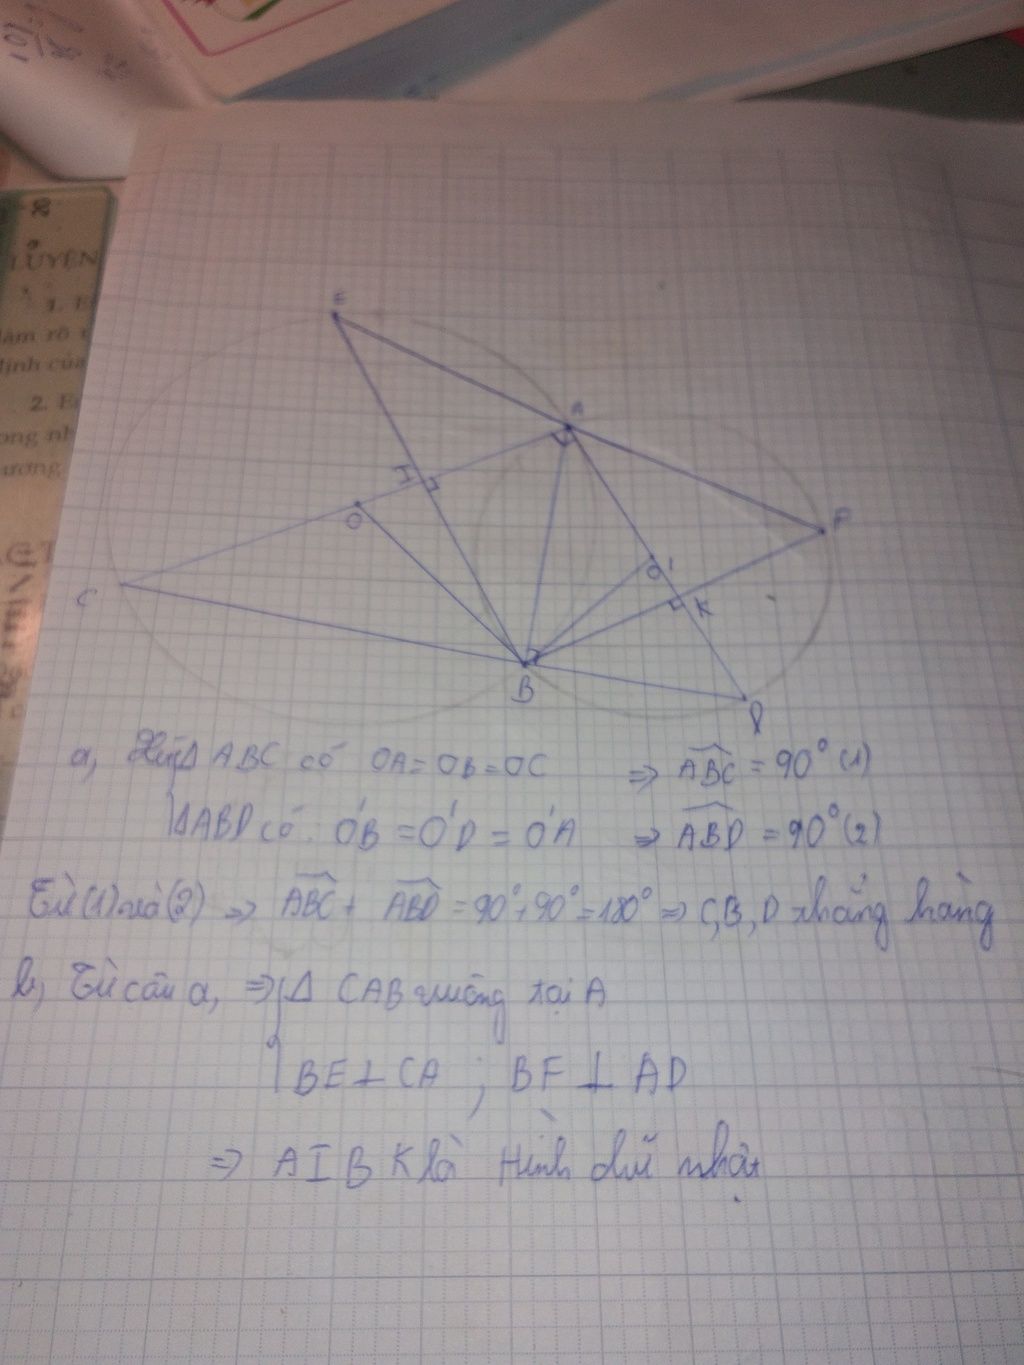 LUYỆN
1. E
làm rõ
định của
2. E
ong nh
ương
E
A
I
O
F
O'
C
K
B
D
a, Xét Δ ABC có OA = OB = OC => ABC = 90° (1)
ΔABD có: O'B = O'D = O'A => ABD = 90° (2)
Từ (1) và (2) => ABC + ABD = 90° + 90° = 180° => C, B, D thẳng hàng
b, Từ câu a, => Δ CAB vuông tại A
BE ⊥ CA ; BF ⊥ AD
=> AIBK là Hình chữ nhật